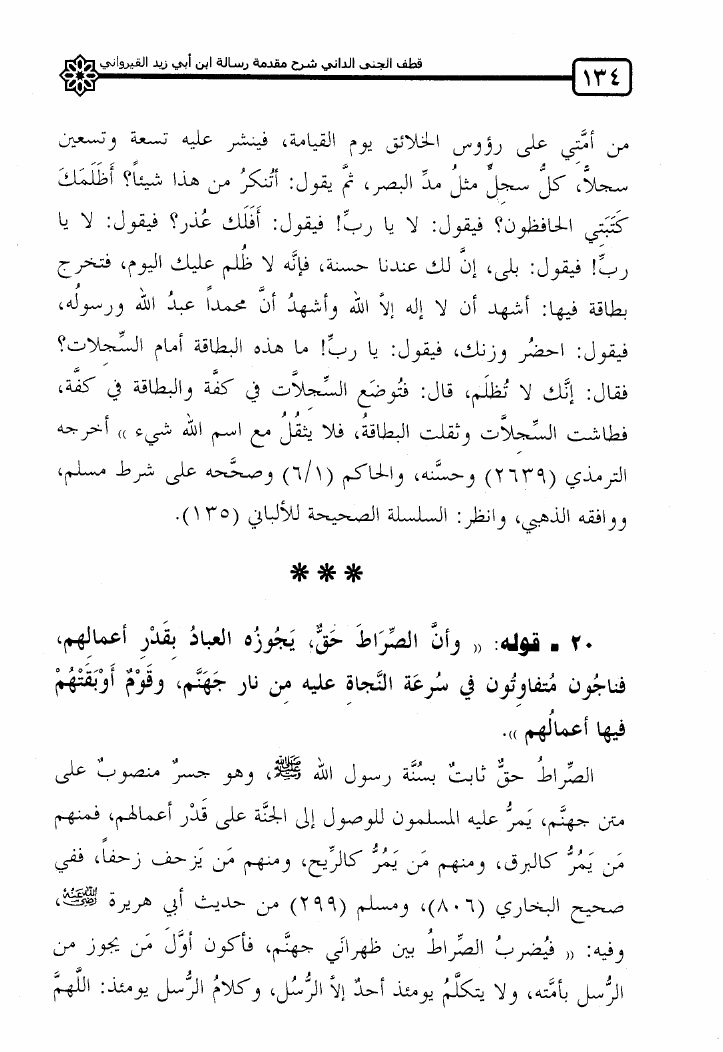 قطف الجنى الداني شرح مقدمة رسالة ابن أبي زيد القيرواني
١٣٤
من أمَّتِي على رؤوس الخلائق يوم القيامة، فينشر عليه تسعة وتسعين
سجلاًّ، كلُّ سجلٍّ مثلُ مدِّ البصر، ثمَّ يقول: أتُنكرُ من هذا شيئاً؟ أَظَلَمَكَ
كَتَبَتِي الحافظون؟ فيقول: لا يا ربِّ! فيقول: أَفَلَك عُذر؟ فيقول: لا يا
ربِّ! فيقول: بلى، إنَّ لك عندنا حسنة، فإنَّه لا ظُلم عليك اليوم، فتخرج
بطاقة فيها: أشهد أن لا إله إلاَّ الله وأشهدُ أنَّ محمداً عبدُ الله ورسولُه،
فيقول: احضُر وزنك، فيقول: يا ربِّ! ما هذه البطاقة أمام السِّجلات؟
فقال: إنَّك لا تُظلَم، قال: فتُوضَع السِّجلاَّت في كفَّة والبطاقة في كفَّة،
فطاشت السِّجلاَّت وثقلت البطاقةُ، فلا يثقُلُ مع اسم الله شيء )) أخرجه
الترمذي (٢٦٣٩) وحسَّنه، والحاكم (٦/١) وصحَّحه على شرط مسلم،
ووافقه الذهبي، وانظر: السلسلة الصحيحة للألباني (١٣٥).
***
٢٠ ـ قوله: (( وأنَّ الصِّرَاطَ حَقٌّ، يَجُوزُه العبادُ بِقَدْرِ أعمالِهم،
فناجُون مُتفاوِتُون في سُرعَة النَّجاةِ عليه مِن نار جَهَنَّم، وقَوْمٌ أَوْبَقَتْهُمْ
فيها أعمالُهم )).
الصِّراطُ حقٌّ ثابتٌ بسُنَّة رسول الله ﷺ، وهو جسرٌ منصوبٌ على
متن جهنَّم، يَمرُّ عليه المسلمون للوصول إلى الجنَّة على قَدْر أعمالهم، فمنهم
مَن يَمُرُّ كالبرق، ومنهم مَن يَمُرُّ كالرِّيح، ومنهم مَن يَزحف زحفاً، ففي
صحيح البخاري (٨٠٦)، ومسلم (٢٩٩) من حديث أبي هريرة رضي الله عنه،
وفيه: (( فيُضربُ الصِّراطُ بين ظهرانَي جهنَّم، فأكون أوَّلَ مَن يجوز من
الرُّسل بأمَّته، ولا يتكلَّمُ يومئذ أحدٌ إلاَّ الرُّسُل، وكلامُ الرُّسل يومئذ: اللَّهمَّ